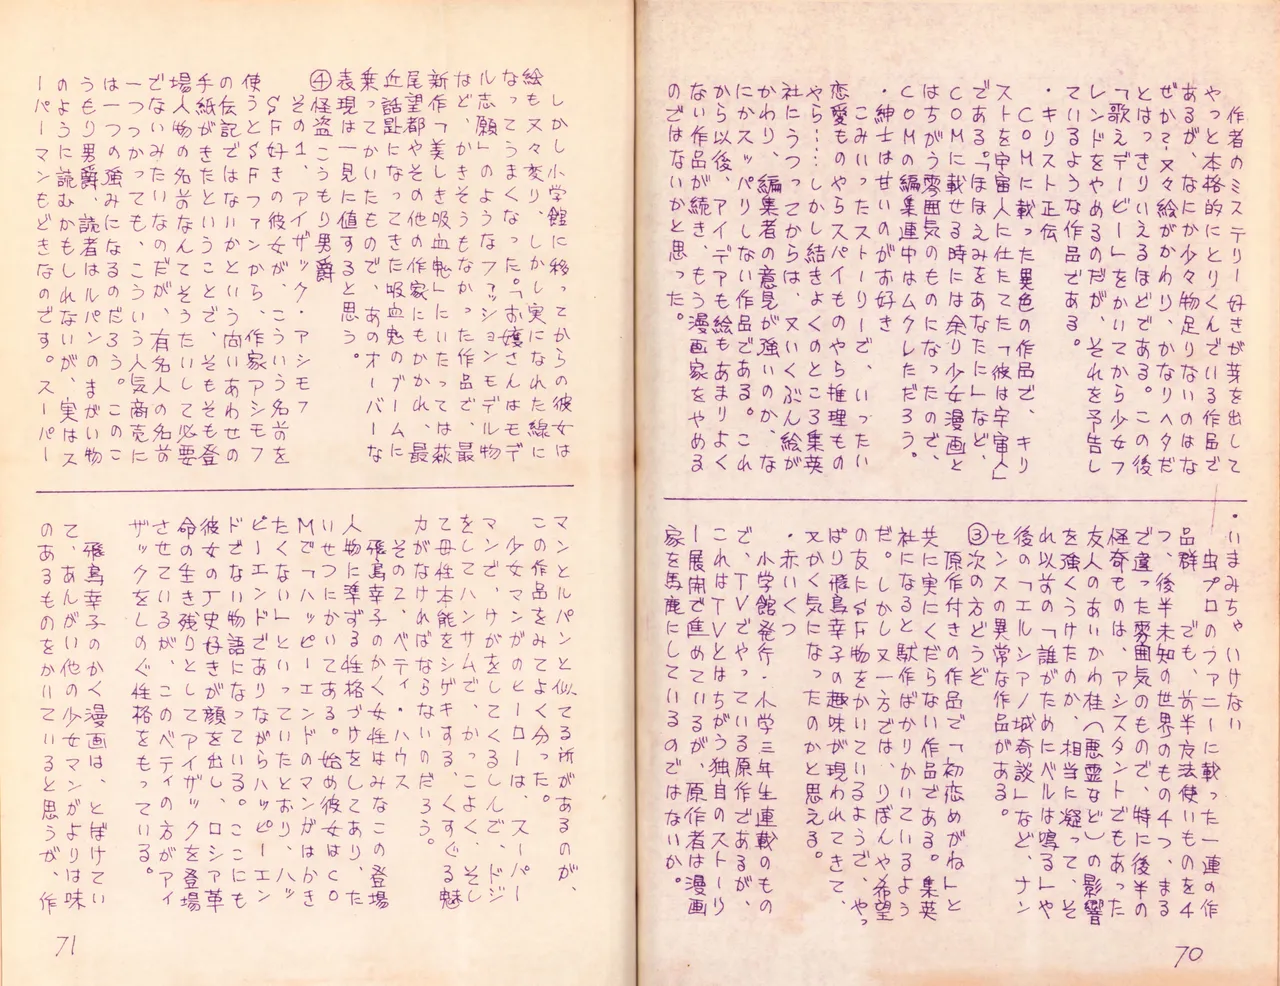 作者のミステリー好きが芽を出して
やっと本格的にとりくんでいる作品で
あるが、なにか少々物足りないのはな
ぜか?又々絵がかわり、かなりヘタだ
とはっきりいえるほどである。この後
「歌えデービー」をかいてから少女フ
レンドをやめるのだが、それを予告し
ているような作品である。
・キリスト正伝
COMに載った異色の作品で、キリ
ストを宇宙人に仕たてた「彼は宇宙人」
である。「ほほえみをあなたに」など、
COMに載せる時には余り少女漫画と
はちがう雰囲気のものになったので、
COMの編集連中はムクレただろう。
・紳士は甘いのがお好き
こみいったストーリーで、いったい
恋愛ものやらスパイものやら推理もの
やら……しかし結きょくのところ集英
社にうつってからは、又いくぶん絵が
かわり、編集者の意見が強いのか、な
にかスッパリしない作品である。これ
から以後、アイデアも絵もあまりよく
ない作品が続き、もう漫画家をやめる
のではないかと思った。
・いまみちゃいけない
虫プロのファニーに載った一連の作
品群 でも、前半友法使いものを4
つ、後半未知の世界のもの4つ、まる
で違った雰囲気のもので、特に後半の
怪奇ものは、アシスタントでもあった
友人のあいかわ桂(悪霊など)の影響
を強くうけたのか、相当に凝って、そ
れ以前の「誰がためにベルは鳴る」や
後の「エルシアノ城奇談」など、ナン
センスの異常な作品がある。
③次の方どうぞ
原作付きの作品で「初恋めがね」と
共に実にくだらない作品である。集英
社になると駄作ばかりかいているよう
だ。しかし又一方では、りぼんや希望
の友にSF物をかいているようで、やっ
ぱり飛鳥幸子の趣味が現われてきて、
又かく気になったのかと思える。
・赤いくつ
小学館発行・小学三年生連載のもの
で、TVでやっている原作であるが、
これはTVとはちがう独自のストーリ
ー展開で進めているが、原作者は漫画
家を馬鹿にしているのではないか。
70
しかし小学館に移ってからの彼女は
絵も又々変り、しかし実になれた線に
なってうまくなった。「お嬢さんはモデ
ル志願」のようなファッションモデル物
など、かきそうもなかった作品で、最
新作「美しき吸血鬼」にいたっては萩
尾望都やその他の作家にもかかれ、最
近話題になってきた吸血鬼のブームに
乗ってかいたもので、あのオーバーな
表現は一見に値すると思う。
④怪盗こうもり男爵
その1、アイザック・アシモフ
SF好きの彼女が、こういう名前を
使うとSFファンから、作家アシモフ
の伝記ではないかという向いあわせの
手紙がきたということで、そもそも登
場人物の名前なんてそうたいして必要
でないみたいなのだが、有名人の名前
一つつかっても、こういう人気商売に
は一つの強みになるのだろう。このこ
うもり男爵、読者はルパンのまがい物
のように読むかもしれないが、実はス
ーパーマンもどきなのです。スーパー
マンとルパンと似てる所があるのが、
この作品をみてよく分った。
少女マンガのヒーローは、スーパー
マンで、けがをしてくるしんで、ドジ
をしてハンサムで、かっこよく、そし
て母性本能をシゲキする、くすぐる魅
力がなければならないのだろう。
その2、ベティ・ハウス
飛鳥幸子のかく女性はみなこの登場
人物に準ずる性格づけをしてあり、た
いせつにかいてある。始め彼女はCO
Mで「ハッピーエンドのマンガはかき
たくない」といっていたとおり、ハッ
ピーエンドでありながらハッピーエン
ドでない物語になっている。ここにも
彼女の丁史好きが顔を出し、ロシア革
命の生き残りとしてアイザックを登場
させているが、このベティの方がアイ
ザックをしのぐ性格をもっている。
飛鳥幸子のかく漫画は、とぼけてい
て、あんがい他の少女マンガよりは味
のあるものをかいていると思うが、作
71